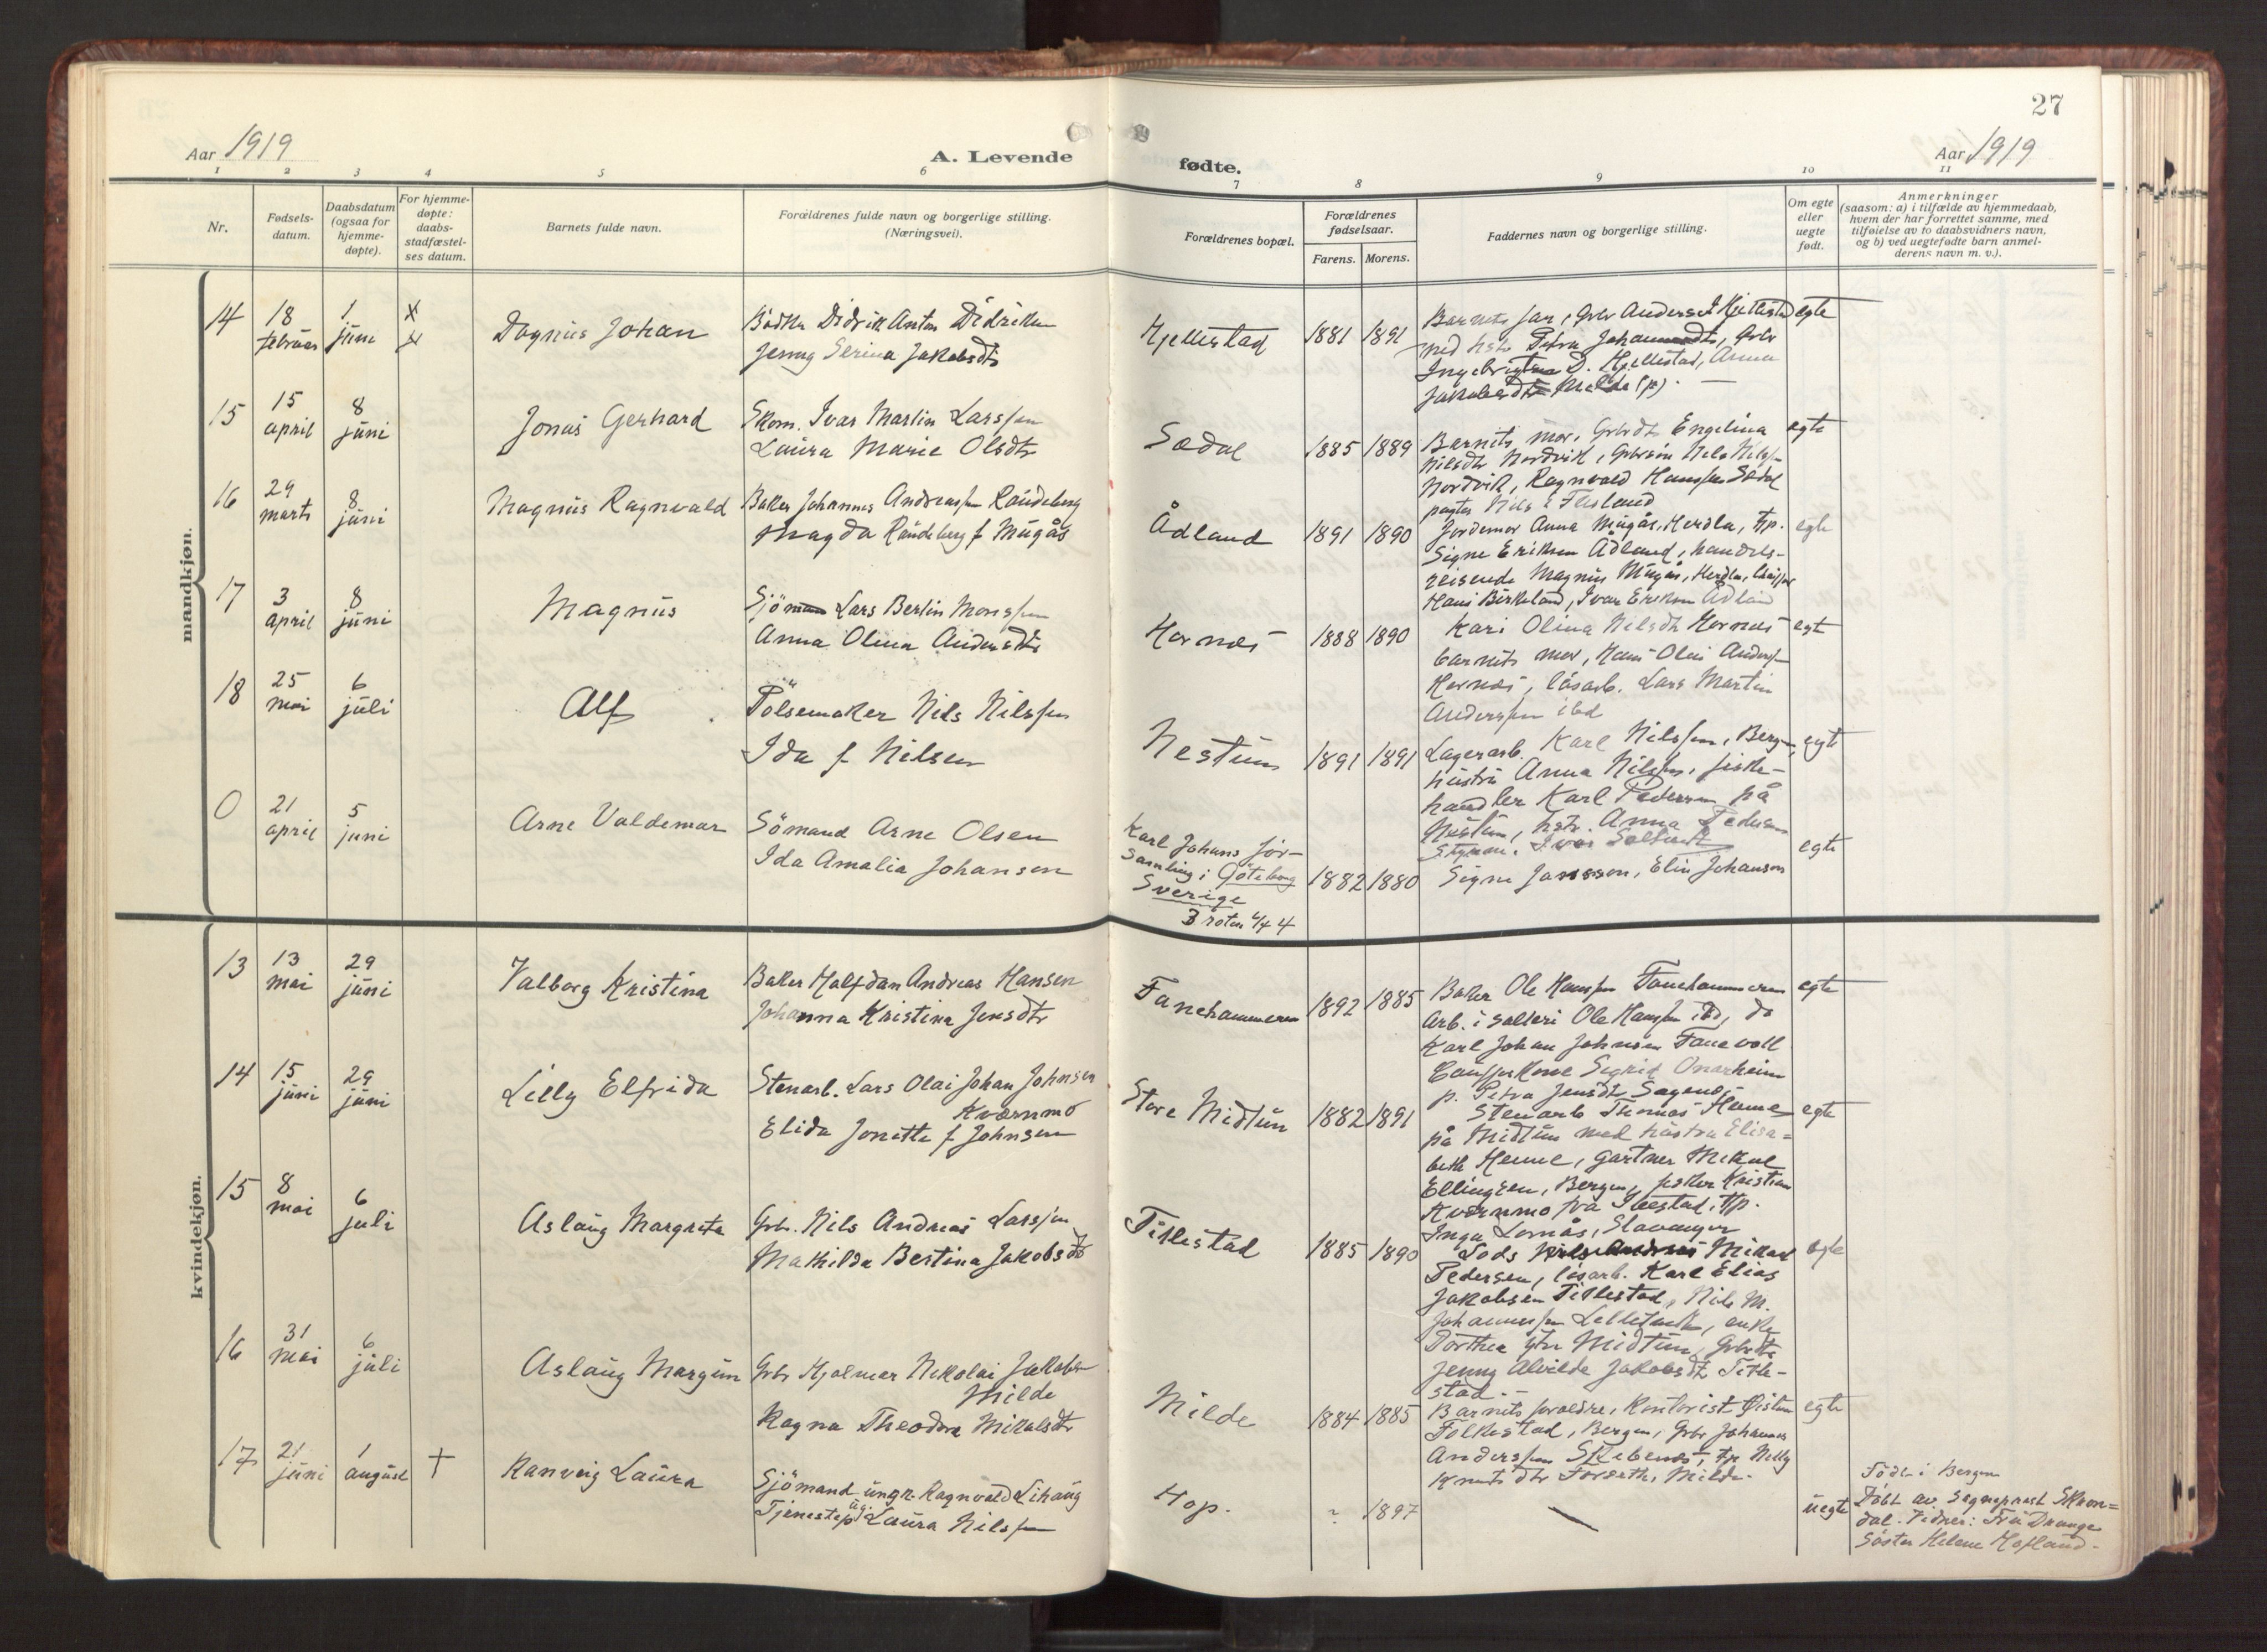 27
Aar 1919
A. Levende
fødte.
Aar 1919
1 2 3 4 5 6 7 8 9 10 11
Nr.
Fødsels-
datum.
Daabsdatum
(ogsaa for
hjemme-
døpte).
For hjemme-
døpte:
daabs-
stadfæstel-
ses datum.
Barnets fulde navn.
Forældrenes fulde navn og borgerlige stilling.
(Næringsvei).
Forældrenes bopæl.
Forældrenes
fødselsaar.
Farens. Morens.
Faddernes navn og borgerlige stilling.
Om egte
eller
uegte
født.
Anmerkninger
(saasom: a) i tilfælde av hjemmedaab,
hvem der har forrettet samme, med
tilføielse av to daabsvidners navn,
og b) ved uegtefødte barn anmel-
derens navn m. v.).
mandkjøn.
14
18
februar
1
juni
x
x
Dagnus Johan
Bödker Didrik Anton Didriksen
Jenny Serina Jakobsdtr
Hjellestad
1881 1891
Barnets far, Grbr Anders I Hjellestad
med hstr Petra Johannesdtr, Grbr
Ingebrigtsen D. Hjellestad, Anna
Jakobsdtr Milde (p). —
egte
15
15
april
8
juni
Jonas Gerhard
Skom. Ivar Martin Larssen
Laura Marie Olsdtr
Sædal
1885 1889
Barnets mor, Grbrdtr Engelina
Nilsdtr Nordvik, Grbrsön Nils Nilssen
Nordvik, Ragnvald Hanssen Sædal
pagter Nils E Flesland
egte
16
29
marts
8
juni
Magnus Ragnvald
Baker Johannes Andreassen Raudeberg
Magda Raudeberg f Mugås
Ådland
1891 1890
Jordemor Anna Mugås, Herdla, Tjp.
Signe Eriksen Ådland, handels-
reisende Magnus Mugås, Herdla,
Hans Birkeland, Ivar Eriksen Ådland
egte
17
3
april
8
juni
Magnus
Sjömann Lars Bertin Monssen
Anna Olina Andersdtr
Hornes
1888 1890
Kari Olina Nilsdtr Hornes
barnets mor, Hans Olai Anderssen
Hornes, lösarb. Lars Martin
Anderssen ibd
egte
18
25
mai
6
juli
Alf
Pölsemaker Nils Nilssen
Ida f Nilsen
Nestun
1891 1891
Lagerarb. Karl Nilssen, Bergen,
hustru Anna Nilssen, fiske-
handler Karl Pedersen på
Nestun, hstr. Anna Pedersen
Styrm. Ivar Soltvedt
egte
0
21
april
5
juni
Arne Valdemar
Sömand Arne Olsen
Ida Amalia Johansen
Karl Johans för-
samling i Göteborg
Sverige
3 roten 4/4 4
1882 1880
Signe Jansson, Elin Johanson
egte
kvindekjøn.
13
13
mai
29
juni
Valborg Kristina
Baker Halfdan Andreas Hansen
Johanna Kristina Jensdtr
Fanehammeren
1892 1885
Baker Ole Hanssen Fanehammeren
Arb. i salteri Ole Hanssen ibd, do
Karl Johan Johnsen Fanevoll
Sigrid Onarheim
p. Petra Jensdtr Sagenes
egte
14
15
juni
29
juni
Lilly Elfrida
Stenarb. Lars Olai Johan Johnsen
Kværnmo
Elida Jonette f Johnsen
Store Midtun
1882 1891
Stenarb Thomas Henne
på Midtun med hustru Elisa=
beth Henne, gartner Mikal
Ellingsen, Bergen, fisker Kristian
Kværnmo fra Ibestad, Tjp.
Inga Lernås, Stavanger
egte
15
8
mai
6
juli
Aslaug Margreta
Grbr. Nils Andreas Larssen
Mathilde Bertina Jakobsdtr
Titlestad
1885 1890
Lods Mikal
Pedersen, lösarb. Karl Elias
Jakobsen Titlestad, Nils M.
Johannessen Lilletvedt, enke
Dorthea Midtun, Grbrdtr
Jenny Alvilde Jakobsdtr Title-
stad. —
egte
16
31
mai
6
juli
Aslaug Margun
Grbr Hjalmar Nikolai Jakobsen
Milde
Ragna Theodora Mikalsdtr
Milde
1884 1885
Barnets foreldre, Kontorist Øistein
Folkestad, Bergen, Grbr Johannes
Anderssen Skibenes, Tjp Nelly
Knutsdtr Forseth, Milde.
egte
17
21
juni
1
august
†
Ranveig Laura
Sjömand ungk. Ragnvald Lihaug
Tjenestep. ug. Laura Nilssen
Hop.
? 1897
—
uegte
Födt i Bergen
Döbt av Sogneprest Skaon=
dal. Vidner: Fru Drange
Söster Helene Hofland.